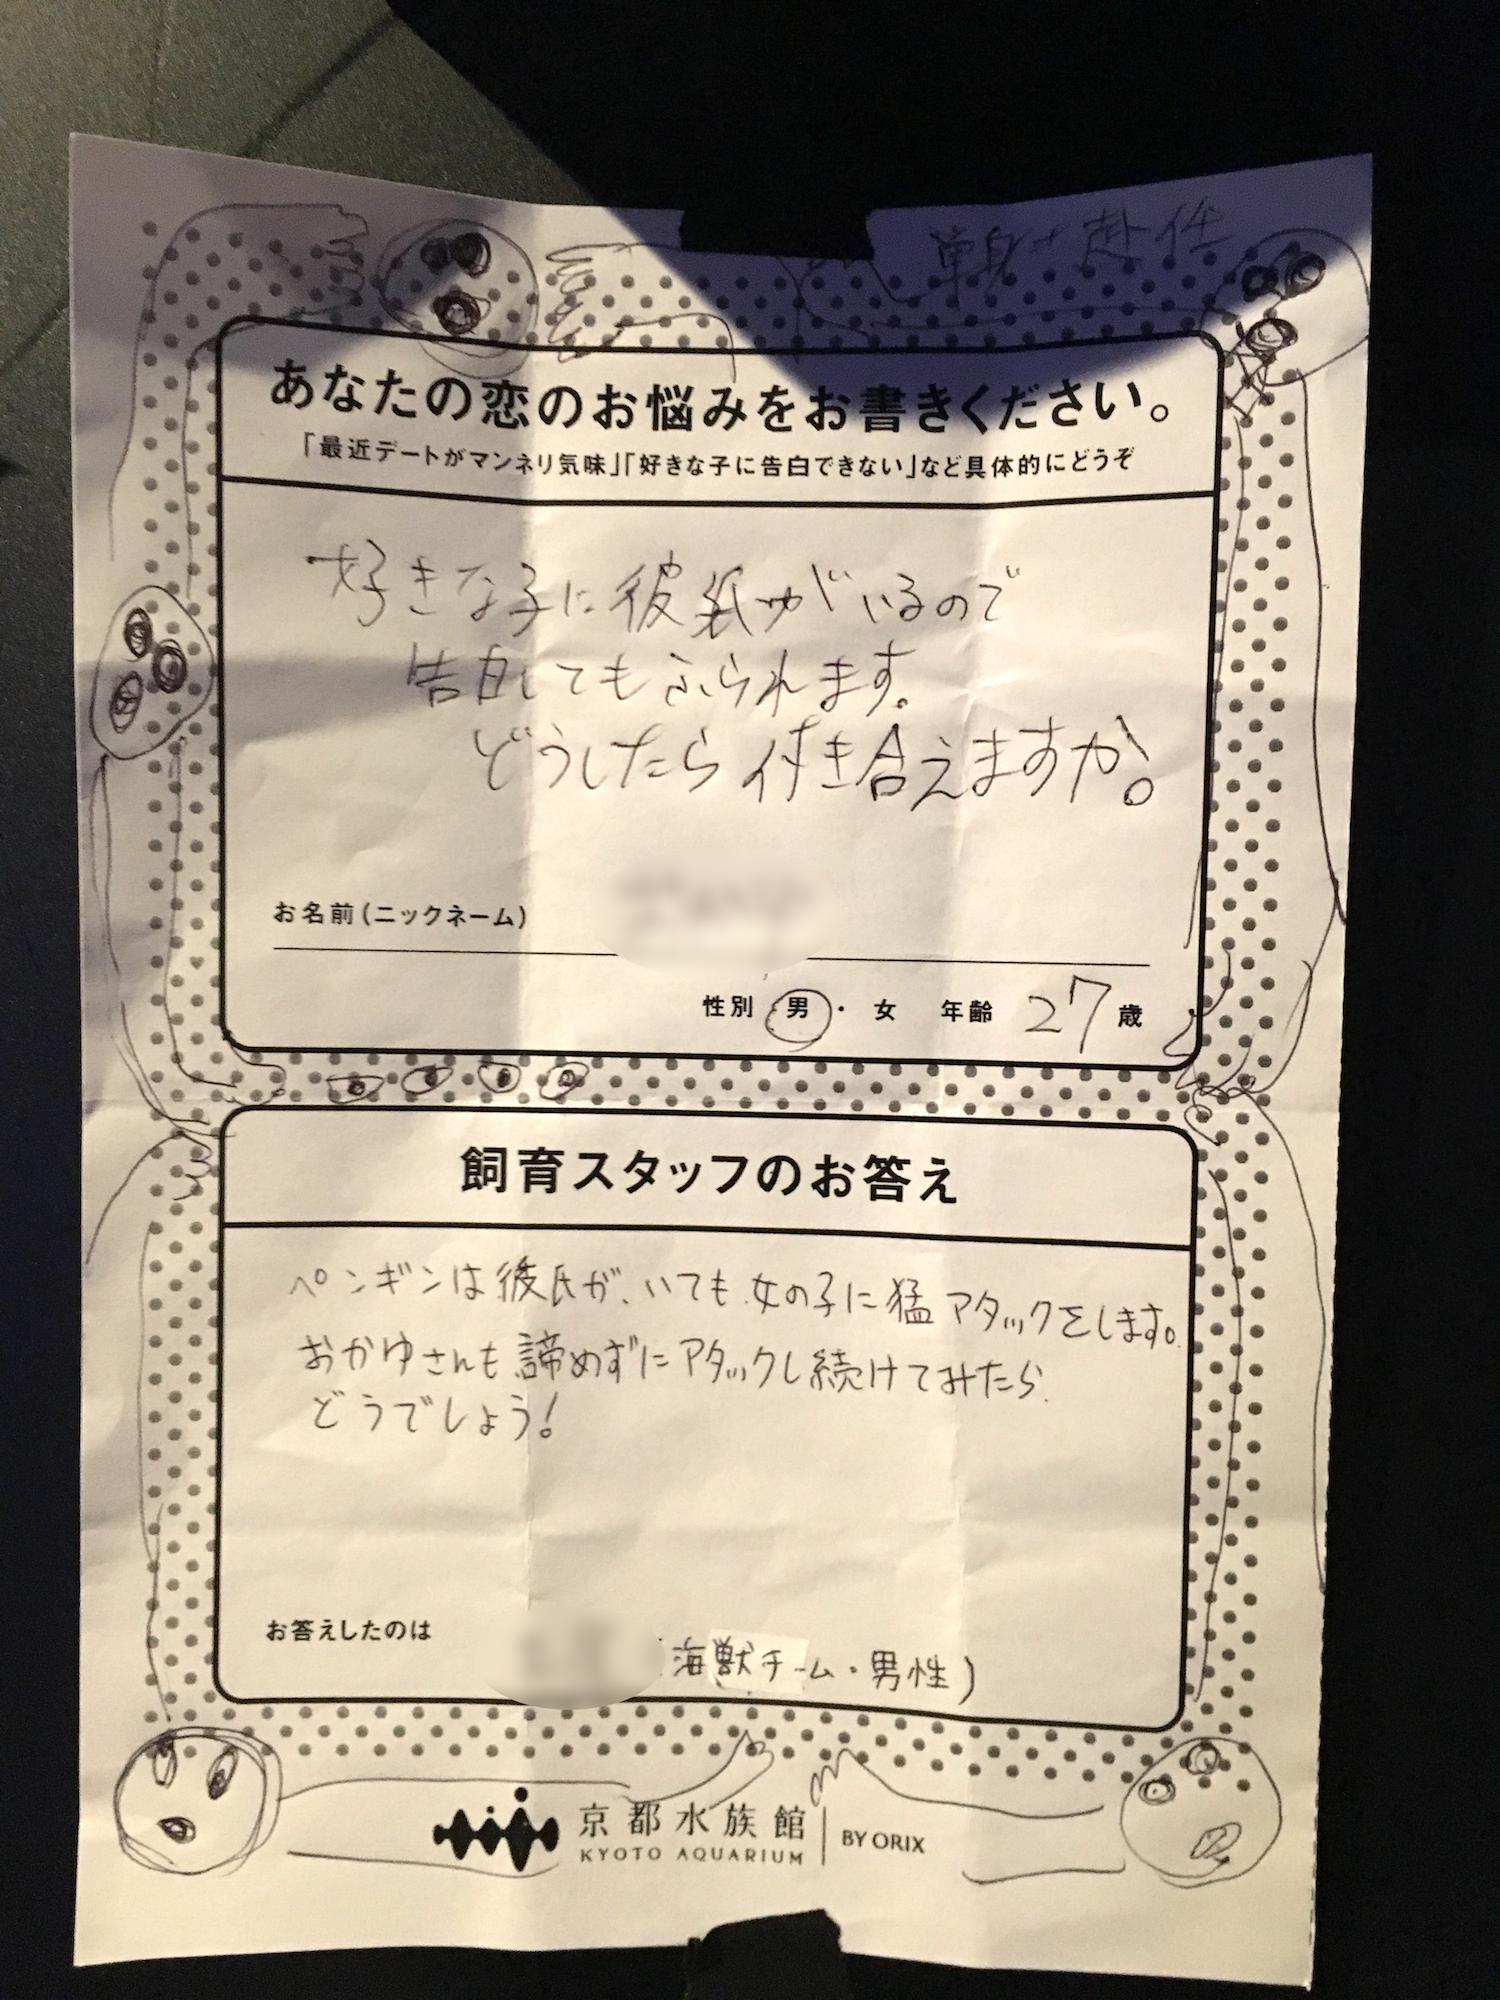 単身赴任
あなたの恋のお悩みをお書きください。
「最近デートがマンネリ気味」「好きな子に告白できない」など具体的にどうぞ
好きな子に彼氏がいるので
告白してもふられます。
どうしたら付き合えますか。
お名前(ニックネーム)
性別 男・女 年齢 27歳
飼育スタッフのお答え
ペンギンは彼氏が、いても女の子に猛アタックをします。
おかゆさんも諦めずにアタックし続けてみたら
どうでしょう!
お答えしたのは
(海獣チーム・男性)
京都水族館 BY ORIX
KYOTO AQUARIUM